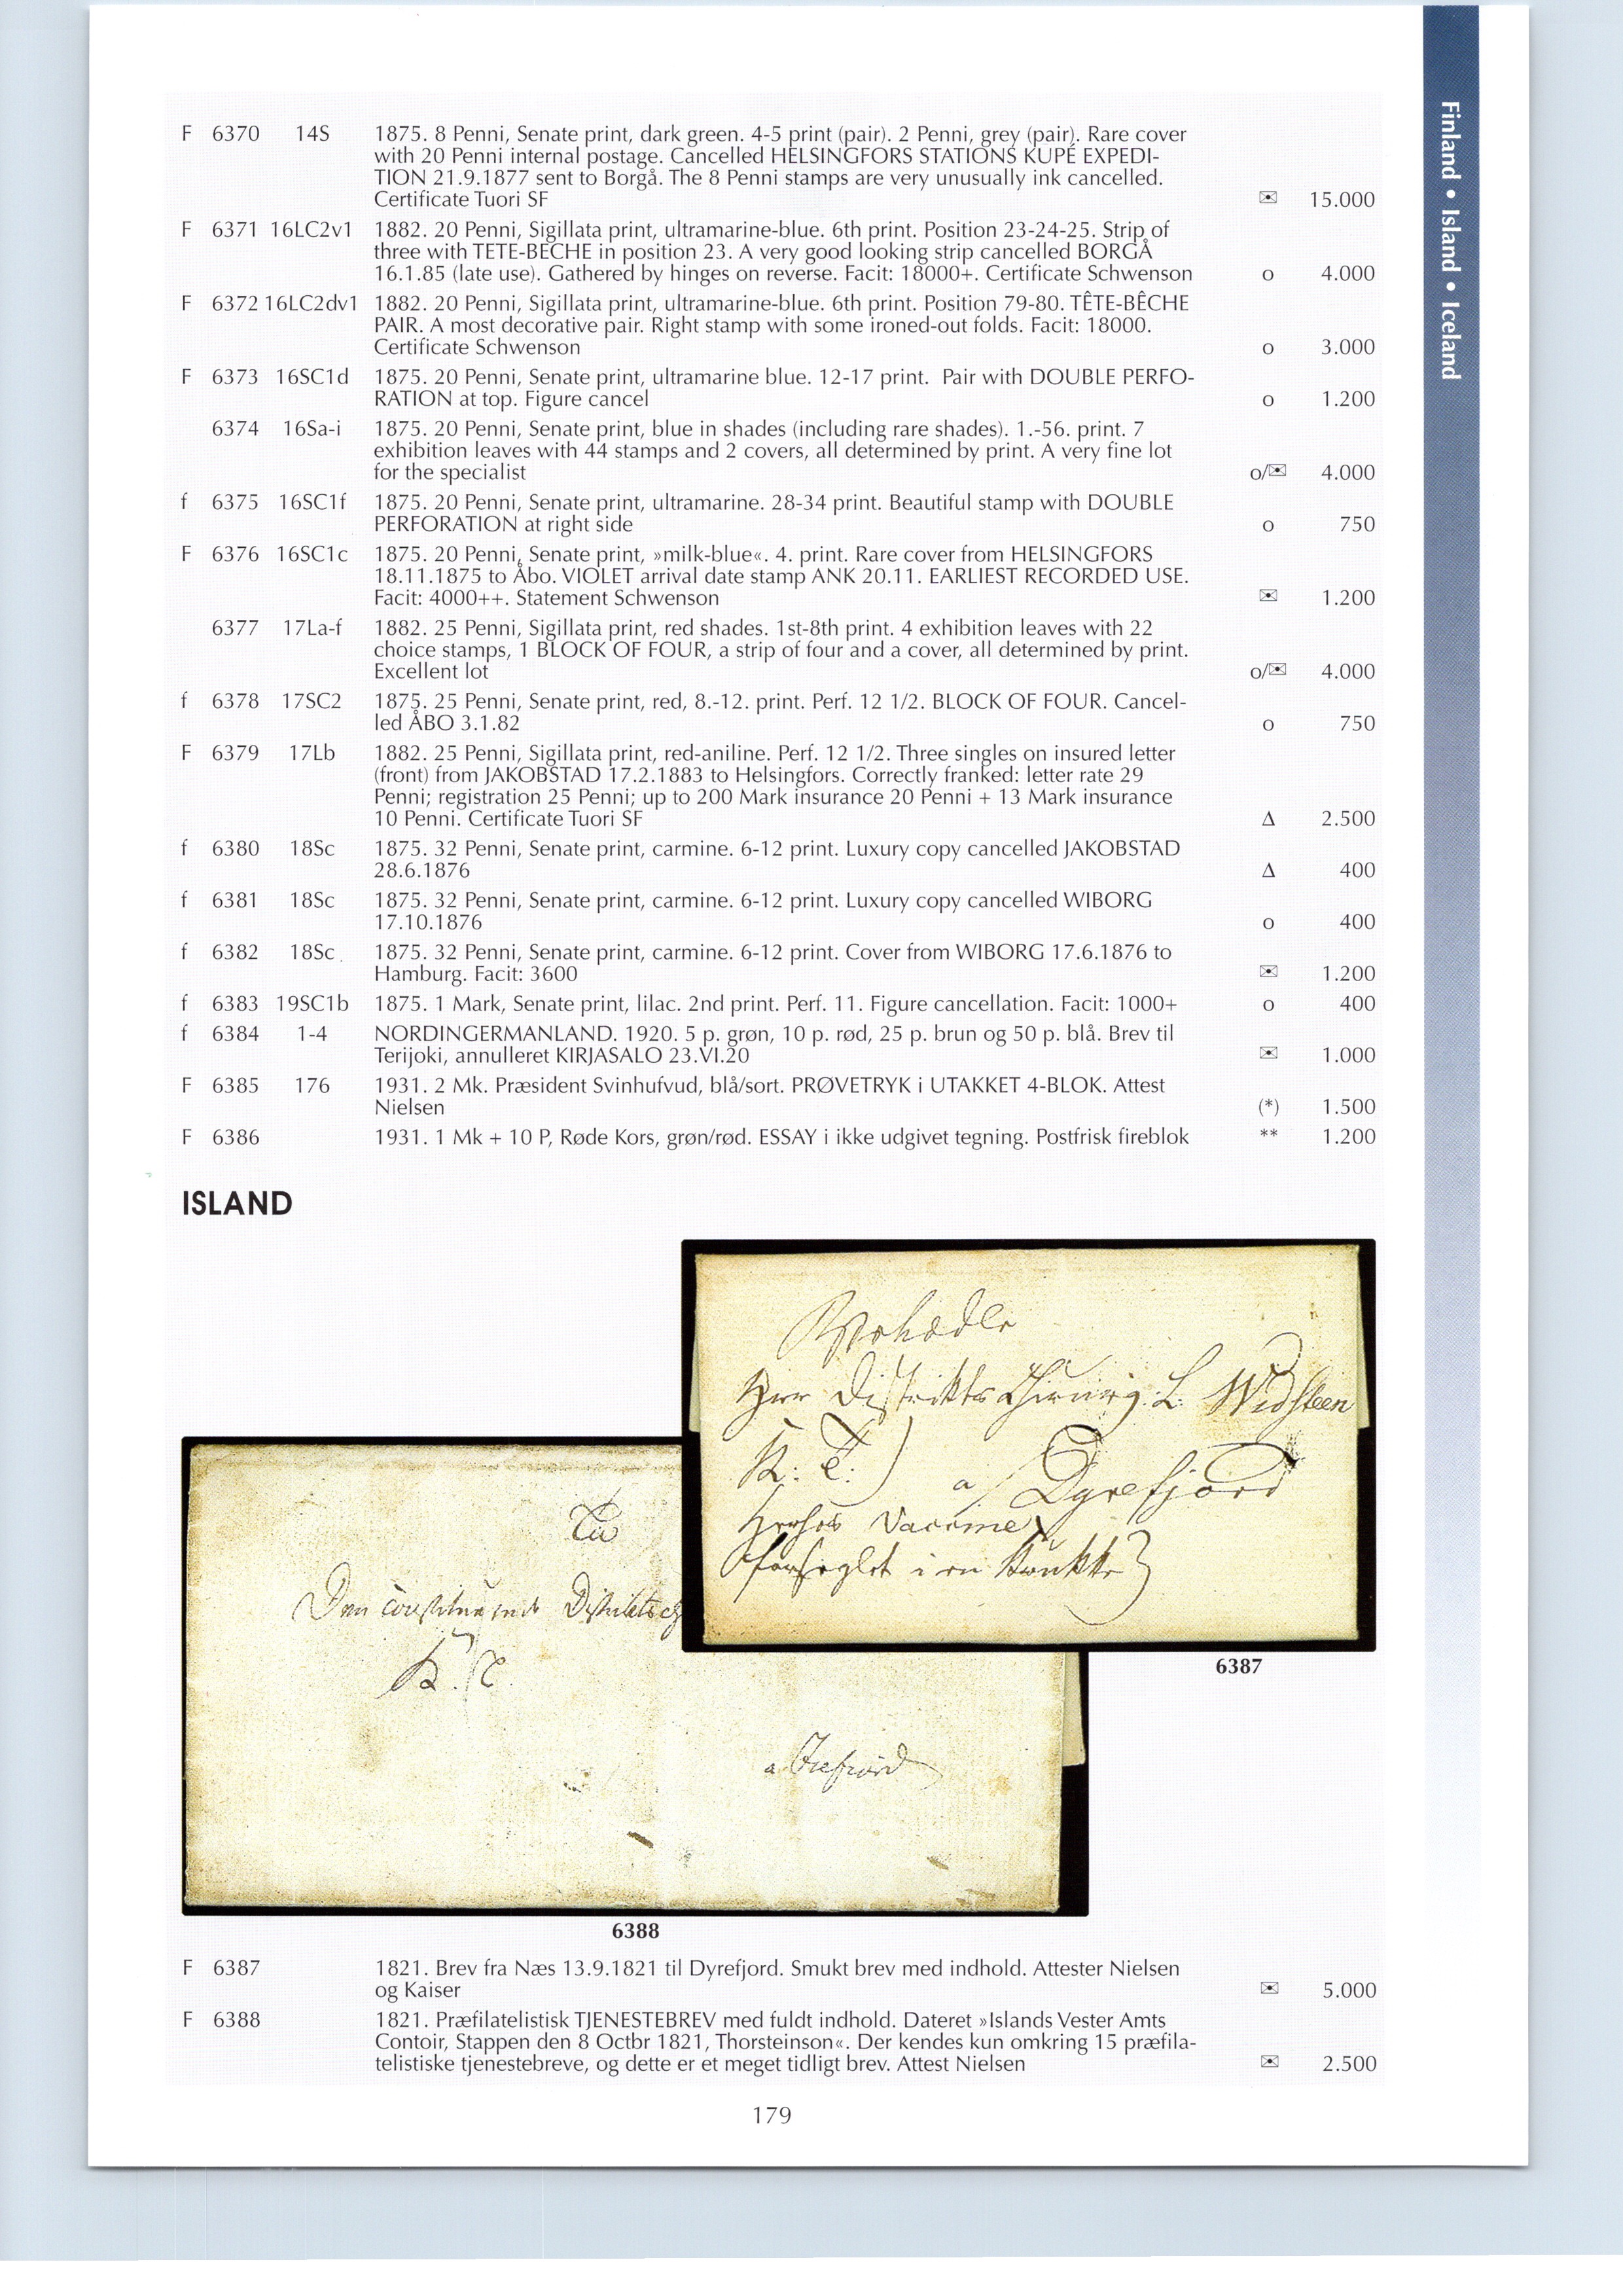 Finland • Island • Iceland
F 6370 14S 1875. 8 Penni, Senate print, dark green. 4-5 print (pair). 2 Penni, grey (pair). Rare cover
with 20 Penni internal postage. Cancelled HELSINGFORS STATIONS KUPÉ EXPEDI-
TION 21.9.1877 sent to Borgå. The 8 Penni stamps are very unusually ink cancelled.
Certificate Tuori SF ✉ 15.000
F 6371 16LC2v1 1882. 20 Penni, Sigillata print, ultramarine-blue. 6th print. Position 23-24-25. Strip of
three with TETE-BECHE in position 23. A very good looking strip cancelled BORGÅ
16.1.85 (late use). Gathered by hinges on reverse. Facit: 18000+. Certificate Schwenson o 4.000
F 6372 16LC2dv1 1882. 20 Penni, Sigillata print, ultramarine-blue. 6th print. Position 79-80. TÊTE-BÊCHE
PAIR. A most decorative pair. Right stamp with some ironed-out folds. Facit: 18000.
Certificate Schwenson o 3.000
F 6373 16SC1d 1875. 20 Penni, Senate print, ultramarine blue. 12-17 print. Pair with DOUBLE PERFO-
RATION at top. Figure cancel o 1.200
6374 16Sa-i 1875. 20 Penni, Senate print, blue in shades (including rare shades). 1.-56. print. 7
exhibition leaves with 44 stamps and 2 covers, all determined by print. A very fine lot
for the specialist o/✉ 4.000
f 6375 16SC1f 1875. 20 Penni, Senate print, ultramarine. 28-34 print. Beautiful stamp with DOUBLE
PERFORATION at right side o 750
F 6376 16SC1c 1875. 20 Penni, Senate print, »milk-blue«. 4. print. Rare cover from HELSINGFORS
18.11.1875 to Åbo. VIOLET arrival date stamp ANK 20.11. EARLIEST RECORDED USE.
Facit: 4000++. Statement Schwenson ✉ 1.200
6377 17La-f 1882. 25 Penni, Sigillata print, red shades. 1st-8th print. 4 exhibition leaves with 22
choice stamps, 1 BLOCK OF FOUR, a strip of four and a cover, all determined by print.
Excellent lot o/✉ 4.000
f 6378 17SC2 1875. 25 Penni, Senate print, red, 8.-12. print. Perf. 12 1/2. BLOCK OF FOUR. Cancel-
led ÅBO 3.1.82 o 750
F 6379 17Lb 1882. 25 Penni, Sigillata print, red-aniline. Perf. 12 1/2. Three singles on insured letter
(front) from JAKOBSTAD 17.2.1883 to Helsingfors. Correctly franked: letter rate 29
Penni; registration 25 Penni; up to 200 Mark insurance 20 Penni + 13 Mark insurance
10 Penni. Certificate Tuori SF Δ 2.500
f 6380 18Sc 1875. 32 Penni, Senate print, carmine. 6-12 print. Luxury copy cancelled JAKOBSTAD
28.6.1876 Δ 400
f 6381 18Sc 1875. 32 Penni, Senate print, carmine. 6-12 print. Luxury copy cancelled WIBORG
17.10.1876 o 400
f 6382 18Sc 1875. 32 Penni, Senate print, carmine. 6-12 print. Cover from WIBORG 17.6.1876 to
Hamburg. Facit: 3600 ✉ 1.200
f 6383 19SC1b 1875. 1 Mark, Senate print, lilac. 2nd print. Perf. 11. Figure cancellation. Facit: 1000+ o 400
f 6384 1-4 NORDINGERMANLAND. 1920. 5 p. grøn, 10 p. rød, 25 p. brun og 50 p. blå. Brev til
Terijoki, annulleret KIRJASALO 23.VI.20 ✉ 1.000
F 6385 176 1931. 2 Mk. Præsident Svinhufvud, blå/sort. PRØVETRYK i UTAKKET 4-BLOK. Attest
Nielsen (*) 1.500
F 6386 1931. 1 Mk + 10 P, Røde Kors, grøn/rød. ESSAY i ikke udgivet tegning. Postfrisk fireblok ** 1.200
ISLAND
Herr Distrikts Chirurg: L. Widsteen
K: T:) a Dyrefjord
Herhos Vaccine
forseglet i en Krukke}
6387
Til
Den constituerende Districts
K. T.
a
6388
F 6387 1821. Brev fra Næs 13.9.1821 til Dyrefjord. Smukt brev med indhold. Attester Nielsen
og Kaiser ✉ 5.000
F 6388 1821. Præfilatelistisk TJENESTEBREV med fuldt indhold. Dateret »Islands Vester Amts
Contoir, Stappen den 8 Octbr 1821, Thorsteinson«. Der kendes kun omkring 15 præfila-
telistiske tjenestebreve, og dette er et meget tidligt brev. Attest Nielsen ✉ 2.500
179